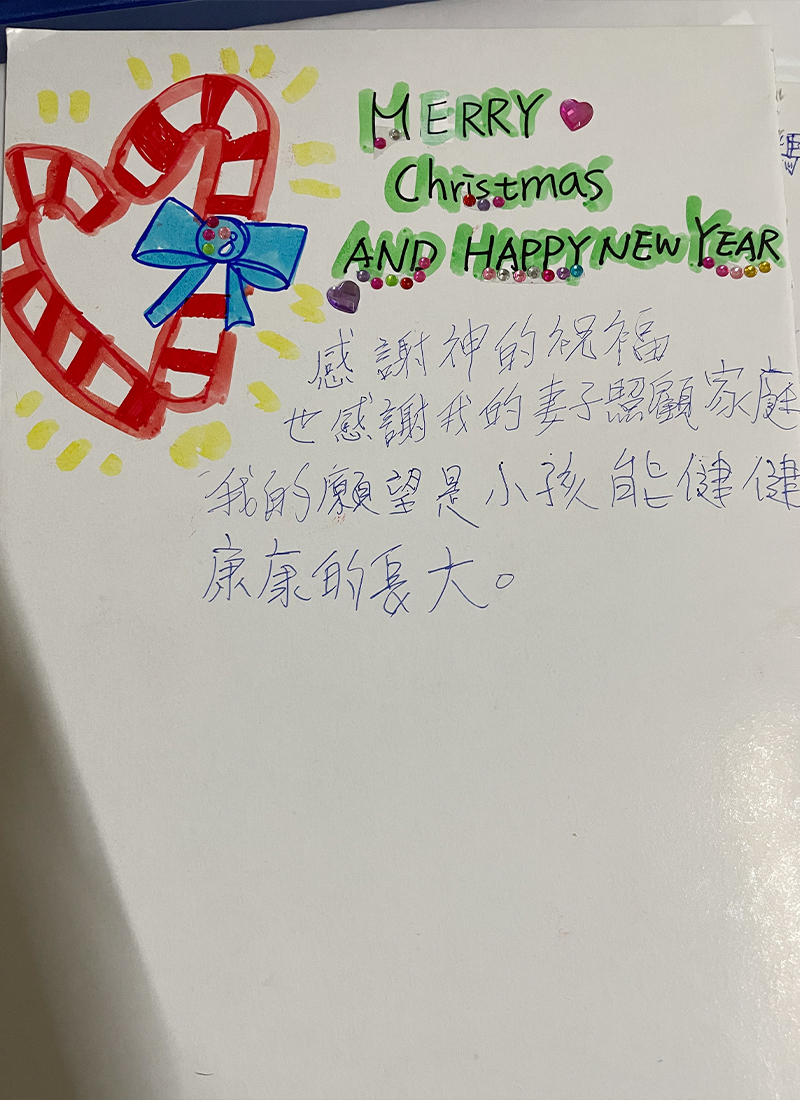 MERRY
Christmas
AND HAPPY NEW YEAR
感謝神的祝福
也感謝我的妻子照顧家庭
我的願望是小孩能健健
康康的長大。